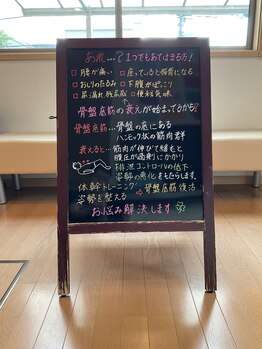 あれ…？1つでもあてはまる方！
□腰が痛い □座っていると猫背になる
□おしりのたるみ □下腹がぽっこり
□尿漏れ、残尿感 □便秘気味
↑
骨盤底筋の衰えが始まってるかも？
骨盤底筋…骨盤の底にある
ハンモック状の筋肉群
衰えると…筋肉が伸びて緩むと
腹圧が過剰にかかり
排泄コントロールの低下
姿勢の悪化をもたらします。
体幹トレーニング
骨盤底筋復活
姿勢を整える
お悩み解決します